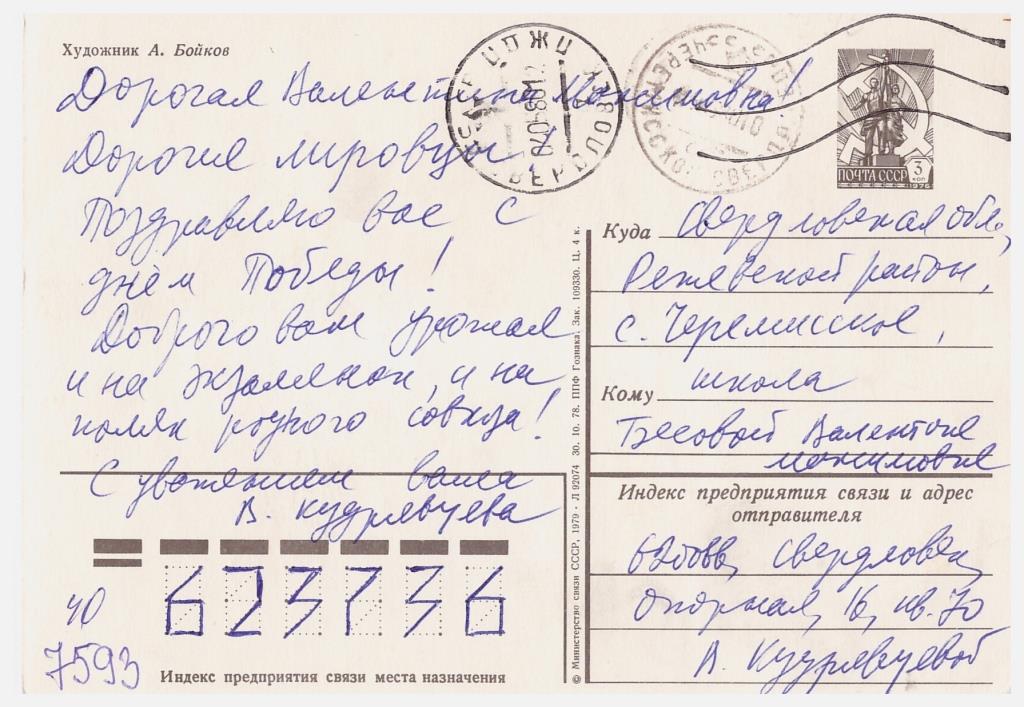 Художник А. Бойков
Дорогая Валентина Максимовна!
Дорогие мировцы!
Поздравляю вас с
днём Победы!
Доброго вам урожая
и на экзаменах, и на
полях родного совхоза!
С уважением ваша
В. Кудрявцева
40
7593
623736
Индекс предприятия связи места назначения
© Министерство связи СССР, 1979 · Л 92074 30. 10. 78. ППФ Гознака. Зак. 109330. Ц. 4 к.
ПОЧТА СССР
3
КОП
1976
Куда Свердловская обл.,
Режевской район,
с. Черемисское,
школа
Кому
Бесовой Валентине
Максимовне
Индекс предприятия связи и адрес
отправителя
Свердловск,
Опорная, 16, кв. 70
В. Кудрявцевой